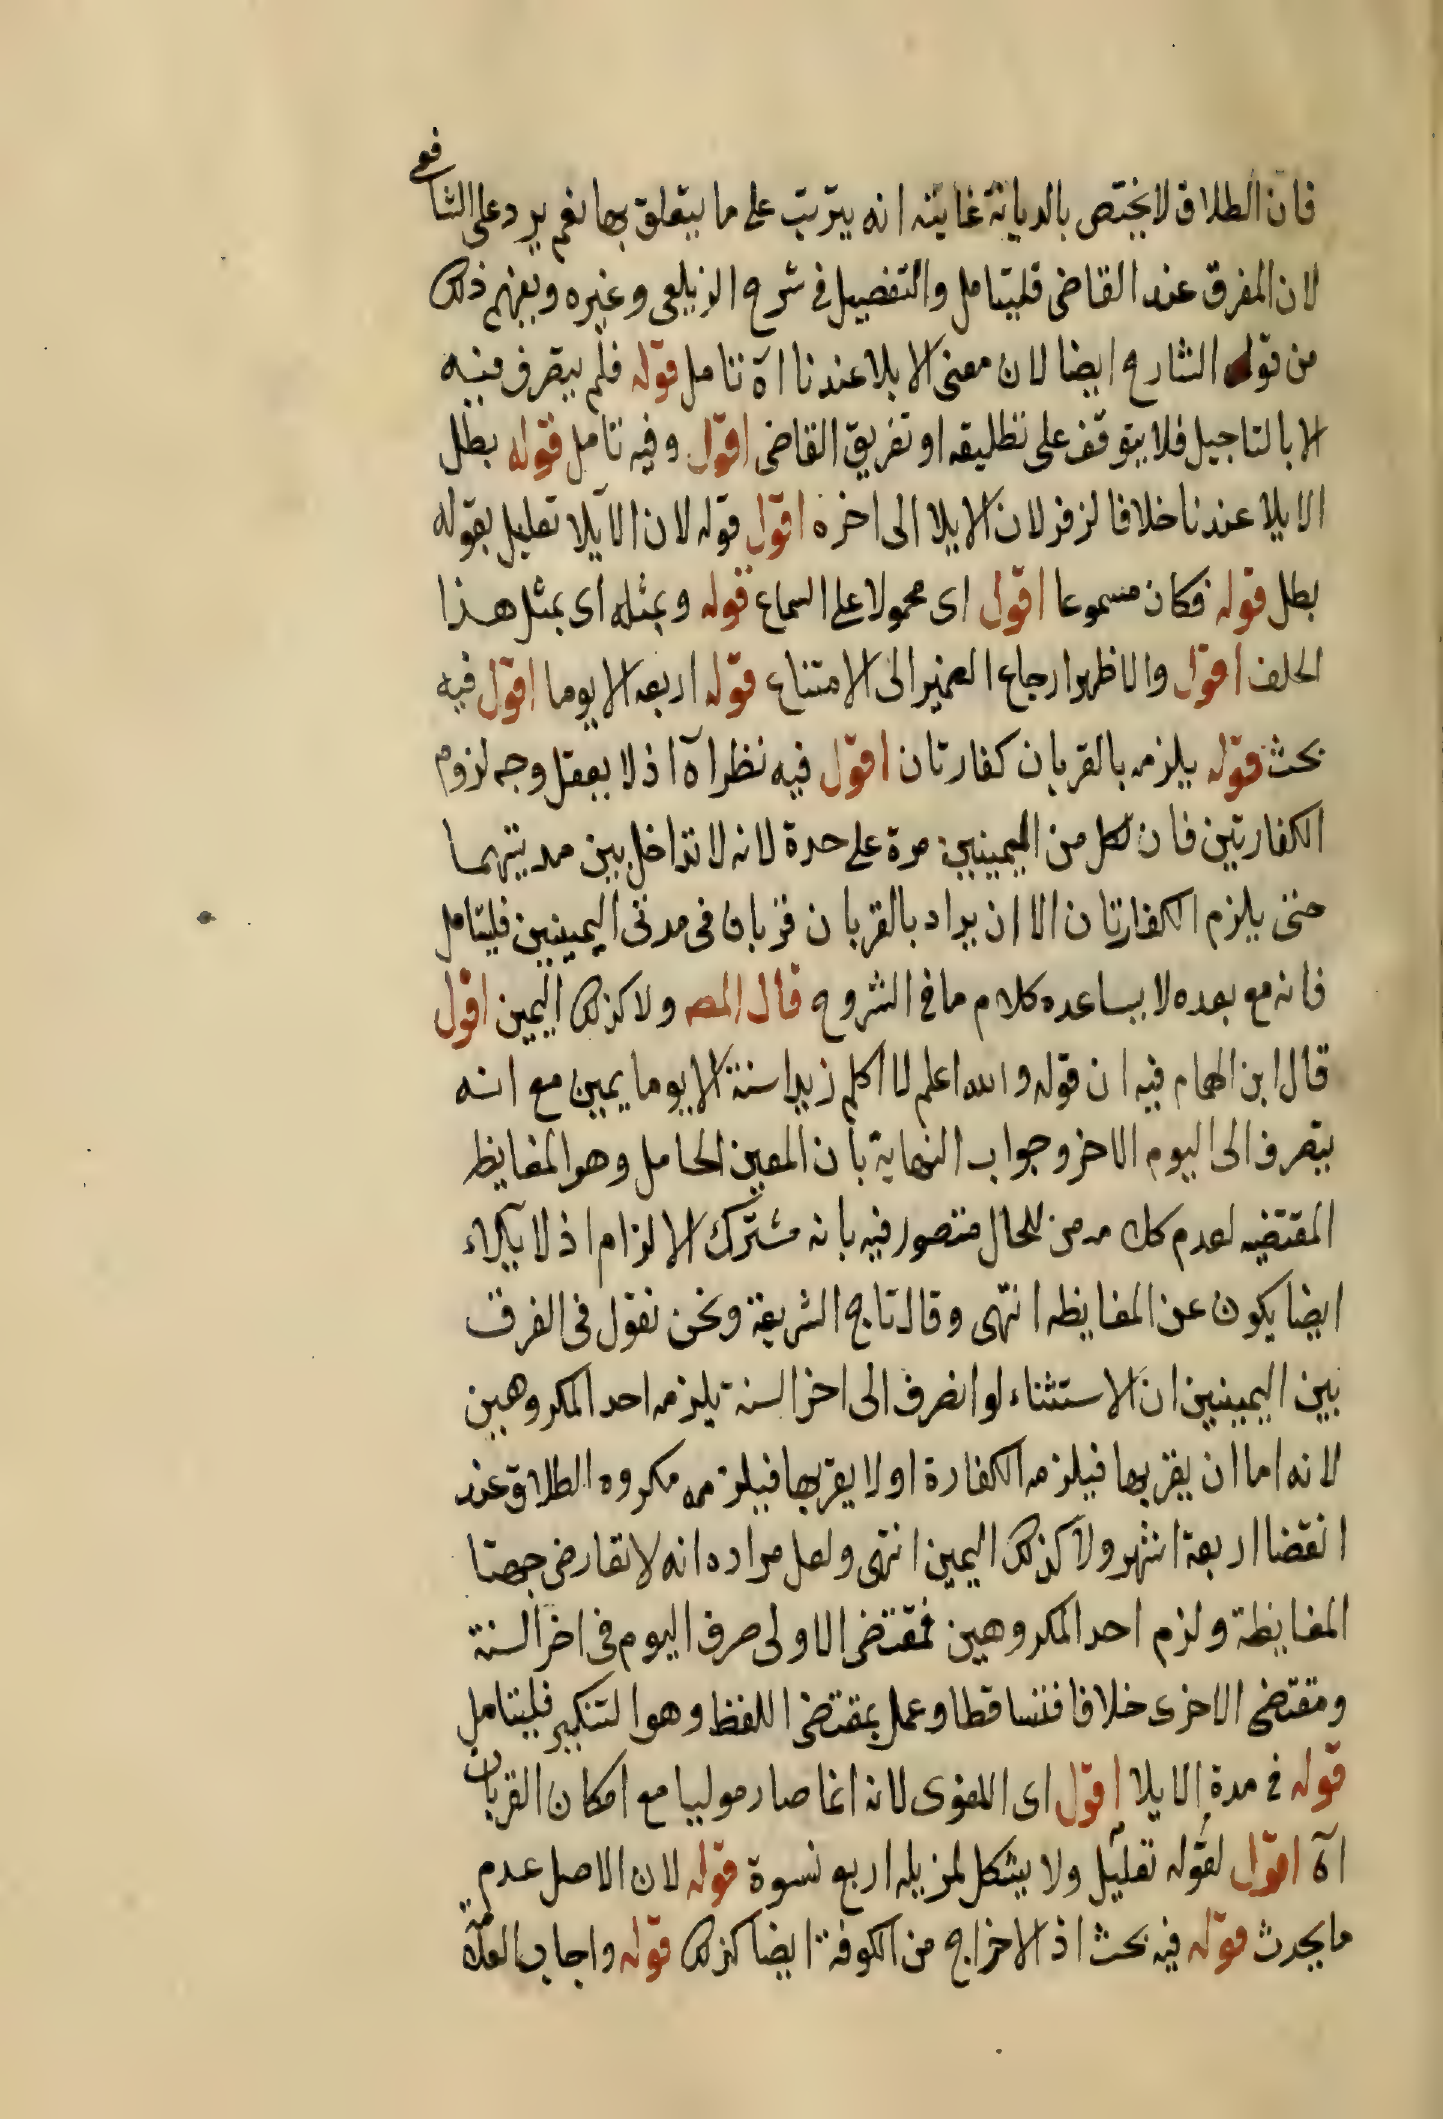 فان الطلاق لا يختص بالديانة غايته انه يترتب على ما يتعلق بها نعم يرد على الشافعى
لان المفرق عنده القاضى فليتامل والتفصيل فى شرح الزيلعى وغيره ويفهم ذلك
من قوله الشارح ايضا لان معنى الايلا عندنا اه تامل قوله فلم يتصرف فيه
الا بالتاجيل فلا يتوقف على تطليقه او تفريق القاضى اقول وفيه تامل قوله بطل
الايلا عندنا خلافا لزفر لان الايلا الى اخره اقول قوله لان الايلا تعليل بقوله
بطل قوله فكان مسموعا اقول اى محمولا على السماع قوله وبمثله اى بمثل هذا
الحلف اقول والاظهر ارجاع الضمير الى الامتناع قوله اربعه الا يوما اقول فيه
بحث قوله يلزمه بالقربان كفارتان اقول فيه نظر اه اذ لا يعقل وجه لزوم
الكفارتين فان لكل من اليمينين مدة على حدة لانه لا تداخل بين مدتيهما
حتى يلزم الكفارتان الا ان يراد بالقربان قربان فى مدتى اليمينين فليتامل
فانه مع بعده لا يساعده كلام ما فى الشروح قال المصـ ولا كذلك اليمين اقول
قال ابن الهمام فيه ان قوله والله اعلم لا اكلم زيدا سنة الا يوما يمين مع انه
يتصرف الى اليوم الاخر وجواب النهاية بأن المعين الحامل وهو المغايظه
المقتضيه لعدم كلامه من للحال منتصور فيه بانه مشترك الالزام اذ لايلاء
ايضا يكون عن المغايظه انتهى وقال تاج الشريعة ونحن نقول فى الفرق
بين اليمينين ان الاستثناء لو انصرف الى اخر السنة يلزمه احد المكروهين
لانه اما ان يقربها فيلزمه الكفارة او لا يقربها فيلزمه مكروه الطلاق عند
انقضا اربعة اشهر ولا كذلك اليمين انتهى ولعل مراده انه لا تعارض جهتا
المغايظة ولزم احد المكروهين فمقتضى الاولى صرف اليوم فى اخر السنة
ومقتضى الاخرى خلافا فتساقطا وعمل بمقتضى اللفظ وهو التنكير فليتامل
قوله فى مدة الايلا اقول اى اللغوى لانه انما صار موليا مع امكان القربان
اه اقول لقوله تعليل ولا يشكل لمن يله اربع نسوة قوله لان الاصل عدم
ما يحدث قوله فيه بحث اذ الاخراج من الكوفة ايضا كذلك قوله واجاب العلامة